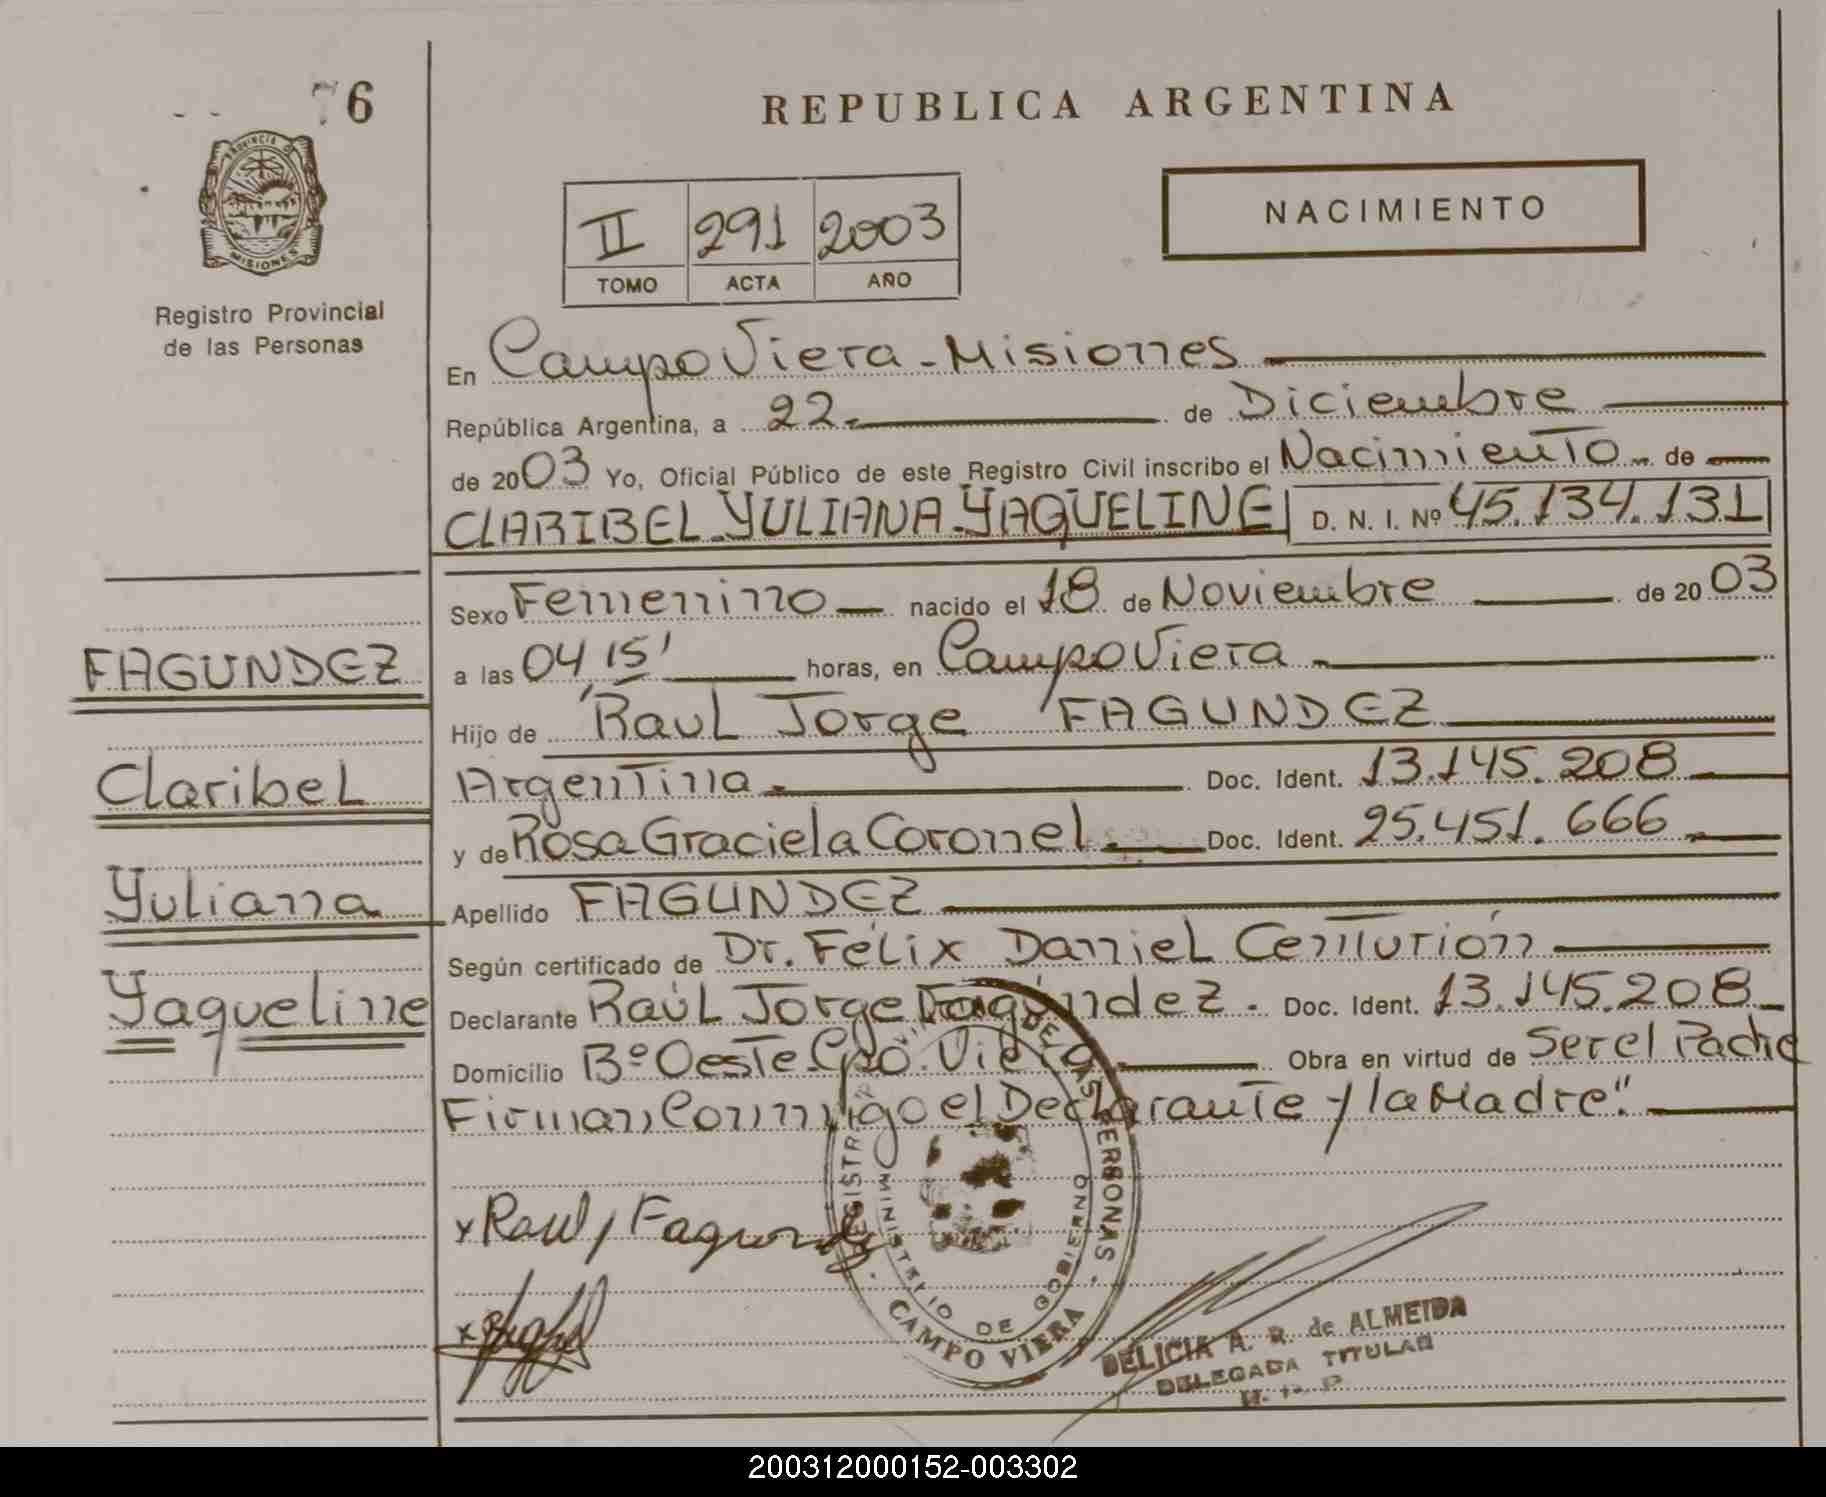 76
PROVINCIA DE
MISIONES
Registro Provincial
de las Personas
REPUBLICA ARGENTINA
NACIMIENTO
II 291 2003
TOMO ACTA AÑO
En Campo Viera - Misiones
República Argentina, a 22 de Diciembre
de 2003 Yo, Oficial Público de este Registro Civil inscribo el Nacimiento de
CLARIBEL YULIANA YAQUELINE D. N. I. Nº 45.134.131
Sexo Femenino nacido el 18 de Noviembre de 2003
a las 04,15' horas, en Campo Viera
Hijo de Raul Jorge FAGUNDEZ
Argentina Doc. Ident. 13.145.208
y de Rosa Graciela Coronel Doc. Ident. 25.451.666
Apellido FAGUNDEZ
Según certificado de Dr. Félix Daniel Centurión
Declarante Raúl Jorge Fagúndez. Doc. Ident. 13.145.208
Domicilio Bº Oeste Cpo. Viera Obra en virtud de Ser el Padre
Firman Conmigo el Declarante y la Madre"
FAGUNDEZ
Claribel
Yuliana
Yaqueline
x Raul J Fagundez
x
DE LAS PERSONAS
MINISTERIO DE GOBIERNO
CAMPO VIERA
DELICIA A. R. de ALMEIDA
DELEGADA TITULAR
200312000152-003302